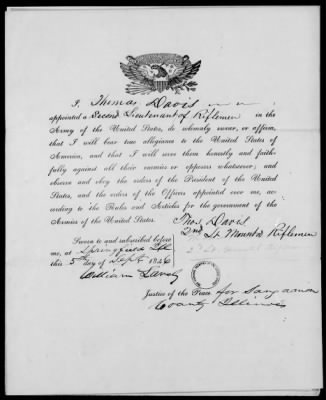 I, Thomas Davis
appointed a Second Lieutenant of Riflemen in the
Army of the United States, do solemnly swear, or affirm,
that I will bear true allegiance to the United States of
America, and that I will serve them honestly and faith-
fully against all their enemies or opposers whatsoever; and
observe and obey the orders of the President of the United
States, and the orders of the Officers appointed over me, ac-
cording to the Rules and Articles for the government of the
Armies of the United States.
Thos Davis
2nd Lt. Mounted Riflemen
Sworn to and subscribed before
me, at Springfield Ill
this 5th day of Sept 1846
William Lavely
Justice of the Peace for Sangamon
County Illinois